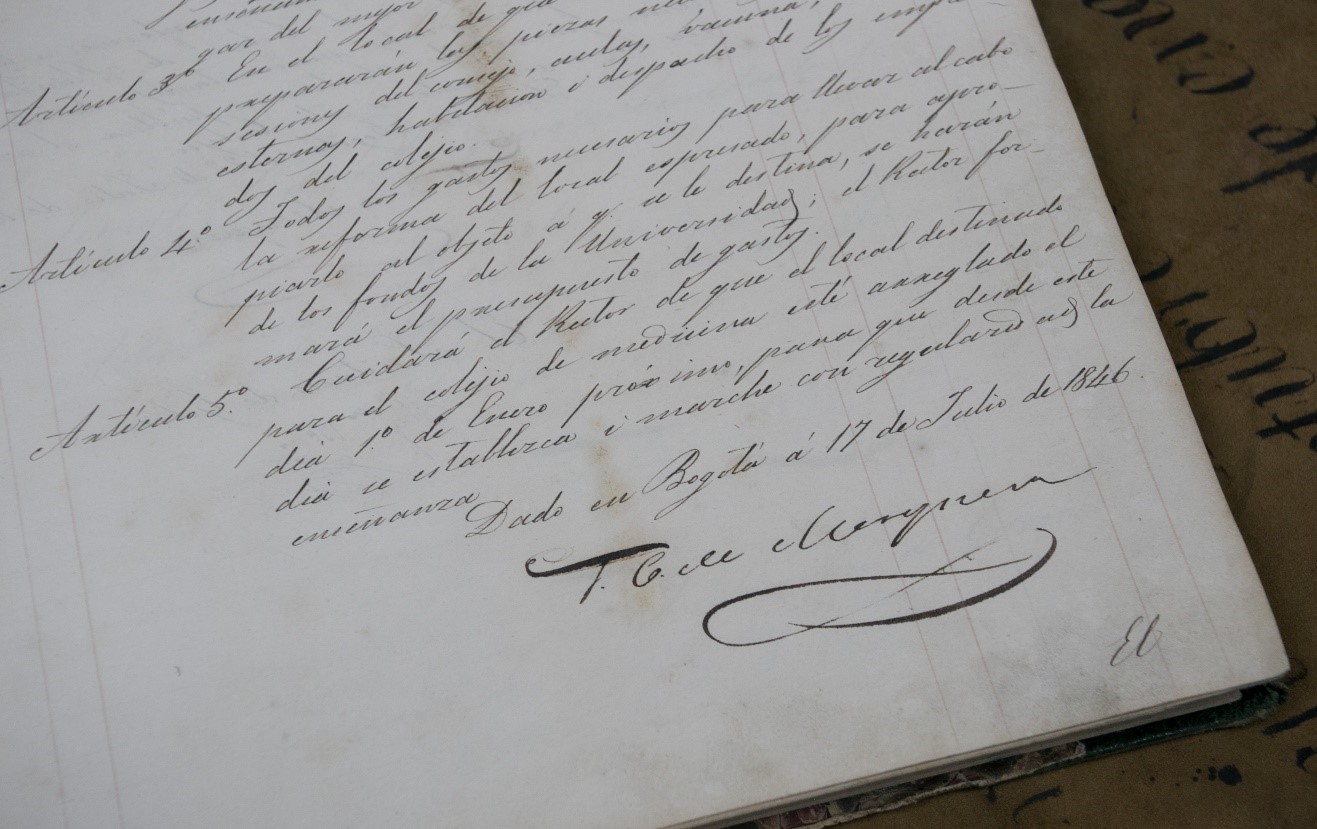 enseñan
gar del mejor
Artículo 3º En el local de que
prepararán las piezas ne
sesiones del consejo, aulas, vacuna,
esternas, habitacion i despacho de los emplea
dos del colejio.
Artículo 4.º Todos los gastos necesarios para llevar al cabo
la reforma del local espresado, para apro-
piarlo al objeto á q.e se le destina, se harán
de los fondos de la Universidad; el Rector for-
mará el presupuesto de gastos.
Artículo 5.º Cuidará el Rector de que el local destinado
para el colejio de medicina esté arreglado el
dia 1º de Enero próximo, para que desde este
dia se establezca i marche con regularidad la
enseñanza
Dado en Bogotá á 17 de Julio de 1846.
T. C. de Mosquera
El